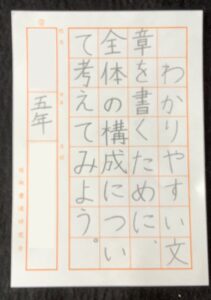 わかりやすい文
章を書くために、
全体の構成につい
て考えてみよう。
五年